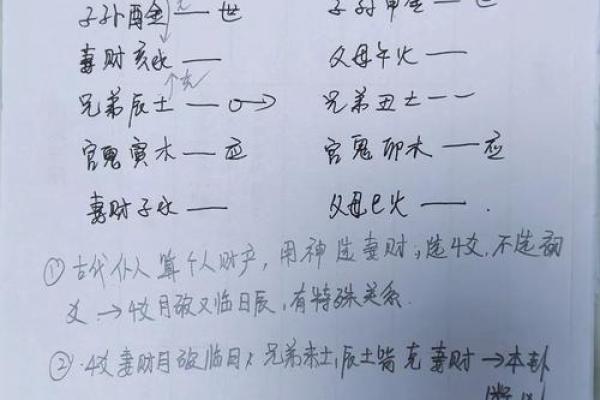 子孙酉金 — 世 子孙申金 — 世
妻财亥水 — 父母午火 —
克
兄弟辰土 — O→ 兄弟丑土 — —
官鬼寅木 — 应 官鬼卯木 — 应
妻财子水 — 父母巳火 —
① 古代仆人算个人财产,用神选妻财;选4爻,不选初
爻→4爻月破又临日辰,有特殊关系.
② 4爻妻财月破临日,兄弟未土,辰土皆克妻财→本卦